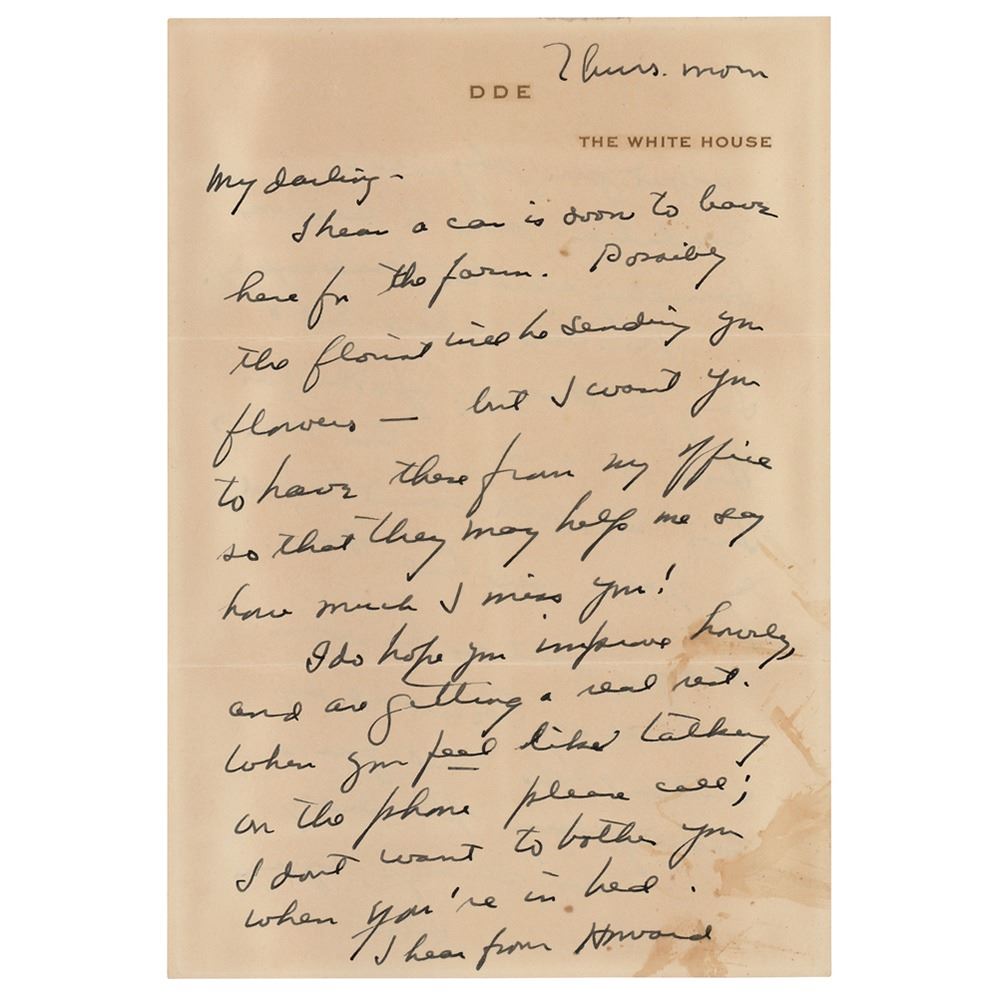 Thurs. morn
DDE
THE WHITE HOUSE
My darling -
I hear a car is soon to leave
here for the farm. Possibly
the florist will be sending you
flowers — but I want you
to have these from my office
so that they may help me say
how much I miss you!
I do hope you improve hourly,
and are getting a real rest.
When you feel like talking
on the phone please call;
I dont want to bother you
when you're in bed.
I hear from Howard